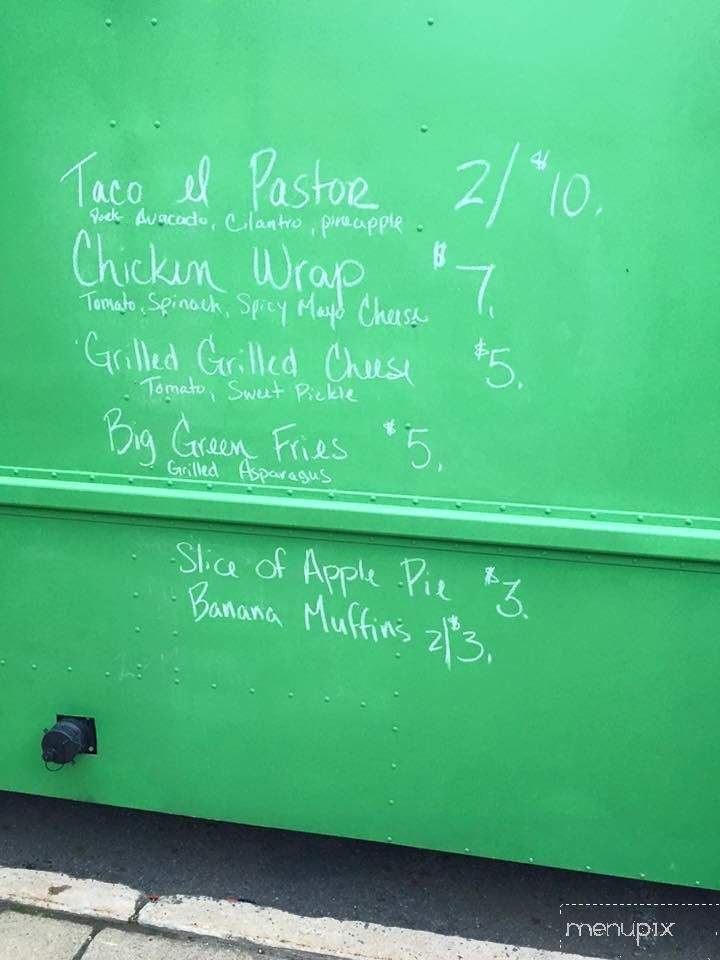 Taco el Pastor 2/$10.
Pork Avacado, Cilantro, pineapple.
Chicken Wrap $7.
Tomato, Spinach, Spicy Mayo Cheese
Grilled Grilled Cheese $5.
Tomato, Sweet Pickle
Big Green Fries $5.
Grilled Asparagus
Slice of Apple Pie $3.
Banana Muffins 2/$3.
menupix